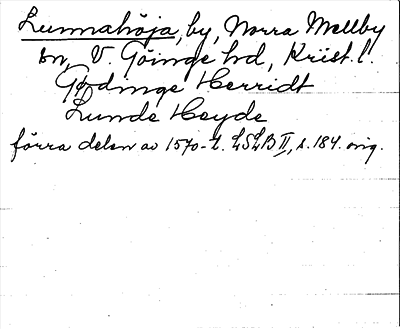 Lunnahöja, by, Norra Mellby
sn, V. Göinge hd, Krist. l.
Gødinge Herridt
Lunde Høyde
förra delen av 1570-t. LSLB II, s. 184. orig.